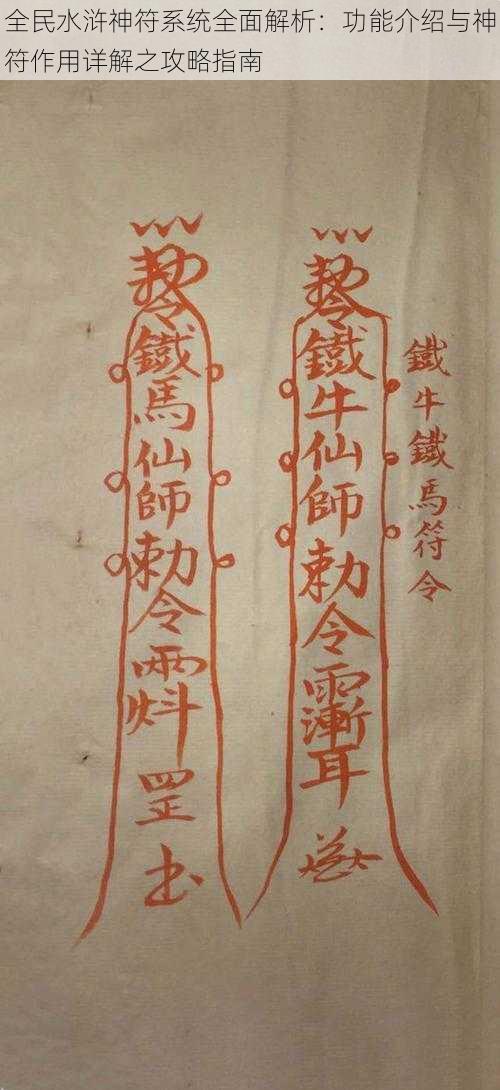 全民水浒神符系统全面解析：功能介绍与神
符作用详解之攻略指南
鐵牛鐵馬符令
鐵牛仙師勅令
耳
鐵馬仙師勅令
罡